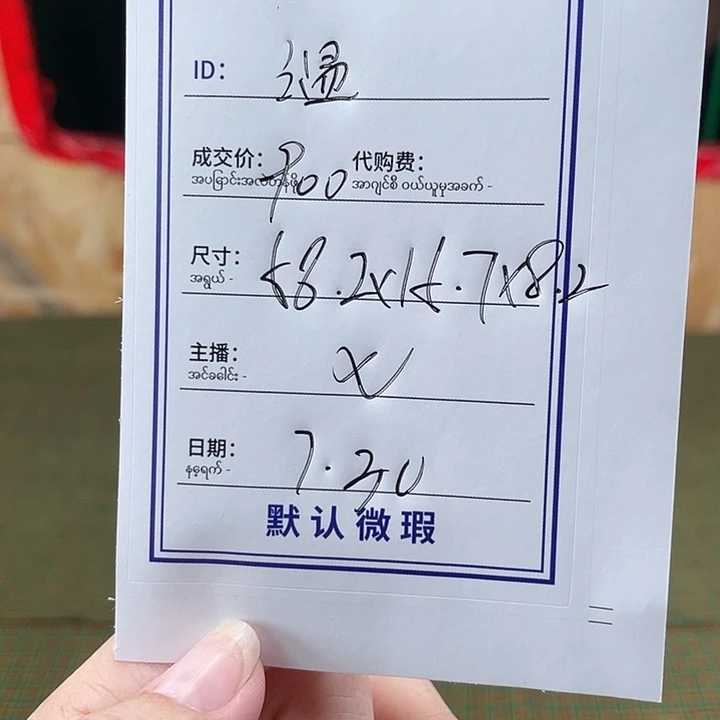 ID: 温
成交价: 900 代购费:
အပြောင်းအလဲဟန်ဖို့ အာဂျင်စီ ဝယ်ယူမှုအခက် -
尺寸: 58.2x15.7x8.2
အရွယ် -
主播: x
အင်ခေါင်း -
日期: 7.30
နေ့ရက် -
默认微瑕